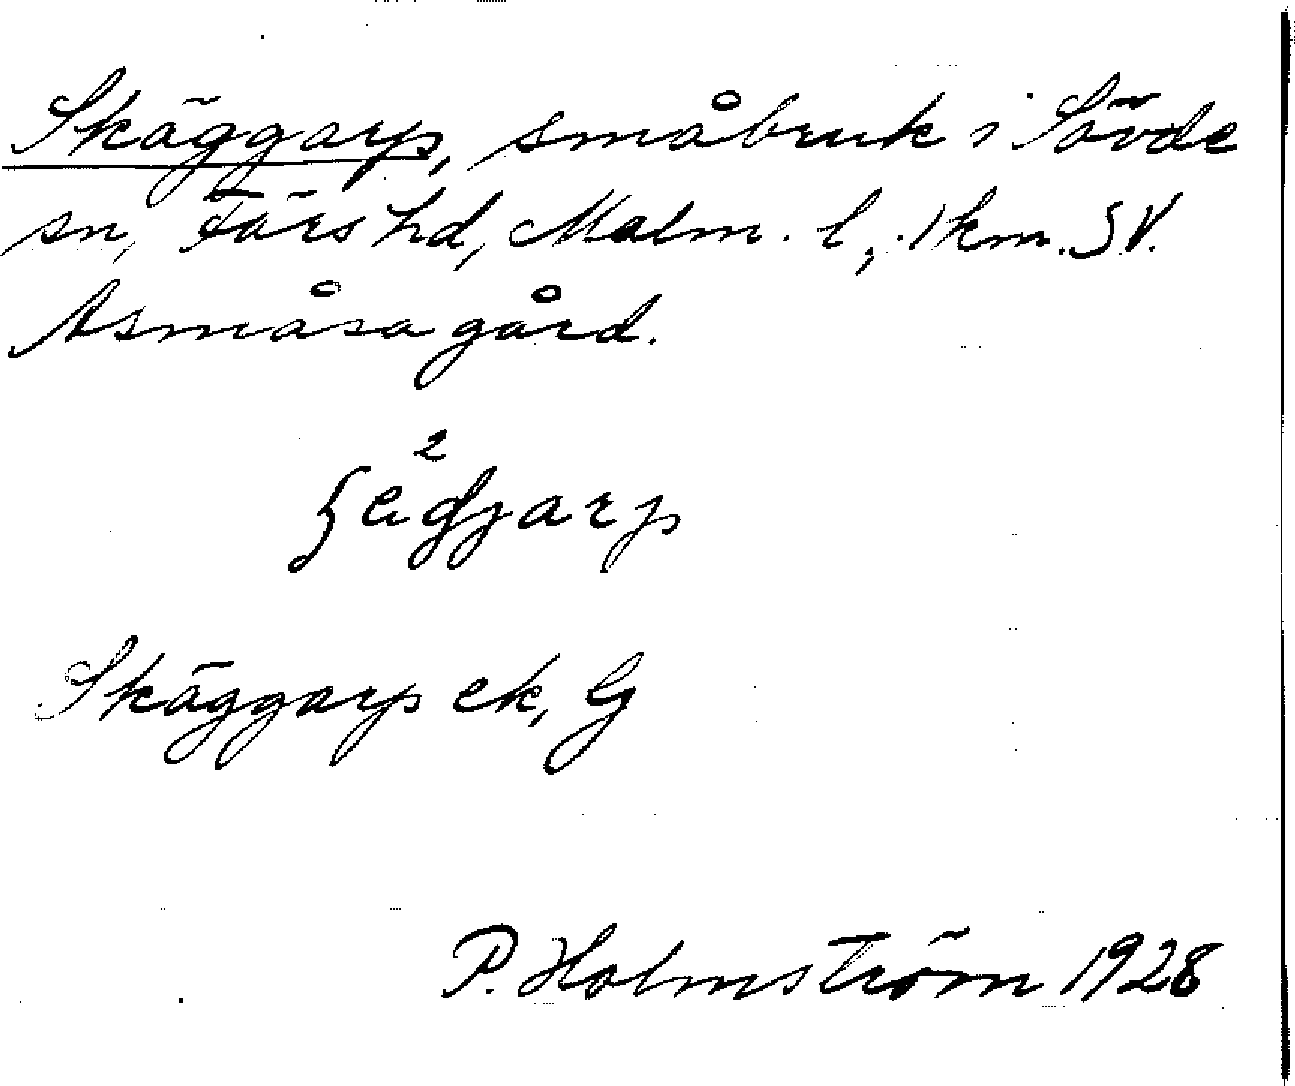 Skäggarp, småbruk i Sövde
sn, Färs hd, Malm. l, 1 km. SV.
Asmåsa gård.
Skäggarp ek, G
P. Holmström 1928